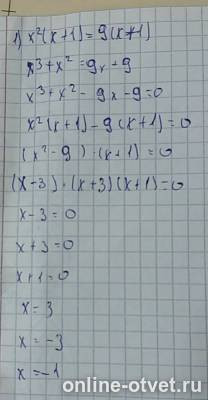 1) x²(x+1)=9(x+1)
x³+x²=9x+9
x³+x²-9x-9=0
x²(x+1)-9(x+1)=0
(x²-9)·(x+1)=0
(x-3)·(x+3)(x+1)=0
x-3=0
x+3=0
x+1=0
x=3
x=-3
x=-1
online-otvet.ru